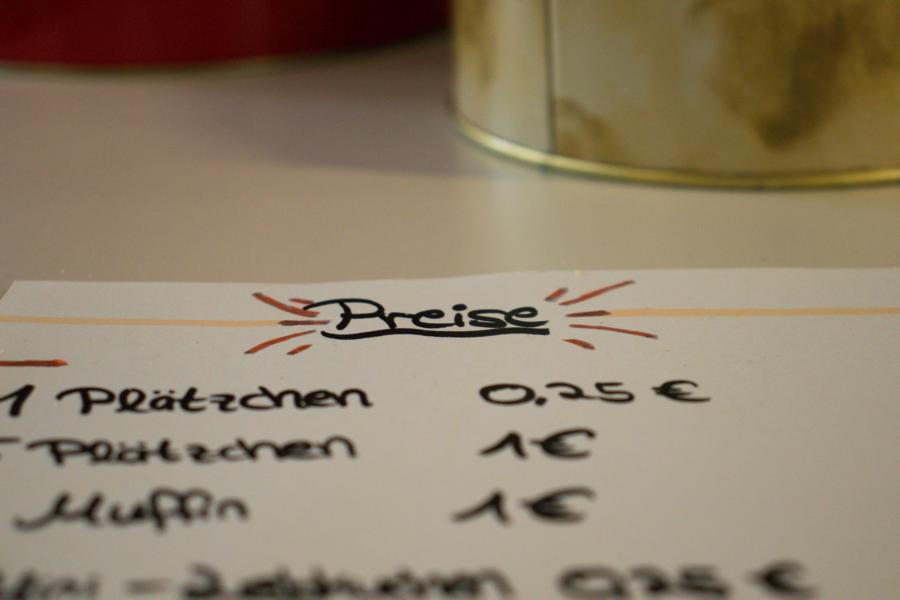 Preise
1 Plätzchen 0,25 €
5 Plätzchen 1 €
Muffin 1 €
0,25 €